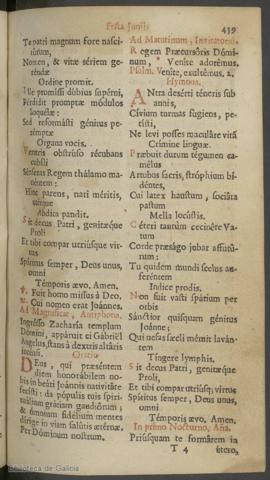 Festa Junii.
439
Te patri magnum fore nasci-
túrum,
Nomen, & vitæ sériem ge-
réndæ
Ordine promit.
Ille promíssi dúbius supérni,
Pérdidit promptæ módulos
loquélæ:
Sed reformásti génitus pe-
émptæ
Organa vocis.
Ventris obstrúso récubans
cubíli
Sénseras Regem thálamo ma-
néntem:
Hinc parens, nati méritis,
utérque
Abdita pandit.
Sit decus Patri, genitæque
Proli,
Et tibi compar utriúsque vir-
tus
Spíritus semper, Deus unus,
omni
Témporis ævo. Amen.
℣. Fuit homo missus à Deo.
℟. Cui nomen erat Joánnes.
Ad Magnificat, Antiphona.
Ingrésso Zacharía templum
Dómini, appáruit ei Gábriel
Angelus, stans à dextris altáris
incénsi.
Oratio
Deus, qui præséntem
diem honorábilem no-
bis in beáti Joánnis nativitáte
fecísti: da pópulis tuis spiri-
tuálium grátiam gaudiórum;
& ómnium fidélium mentes
dírige in viam salútis ætérnæ.
Per Dóminum nostrum.
Ad Matutinum, Invitatorium.
Regem Præcursóris Dómi-
num, * Veníte adorémus.
Psalm. Veníte, exultémus. a.
Hymnus.
Antra desérti téneris sub
annis,
Cívium turmas fúgiens, pe-
tísti,
Ne levi posses maculáre vitá
Crímine linguæ.
Præbuit durum tégumen ca-
mélus
Artubus sacris, stróphium bi-
déntes,
Cui latex haustum, sociáta
pastum
Mella locústis.
Céteri tantùm cecinére Va-
tum
Corde præságo jubar affutú-
rum:
Tu quidem mundi scelus au-
feréntem
Indice prodis.
Non fuit vasti spátium per
orbis
Sánctior quisquam génitus
Joánne;
Qui nefas sæcli méruit laván-
tem
Tíngere lymphis.
Sit decus Patri, genitæque
Proli,
Et tibi compar utriúsq; virtus;
Spíritus semper, Deus unus,
omni
Témporis ævo. Amen.
In primo Nocturno, Aña.
Priúsquam te formárem in
T 4
útero,
Biblioteca de Galicia